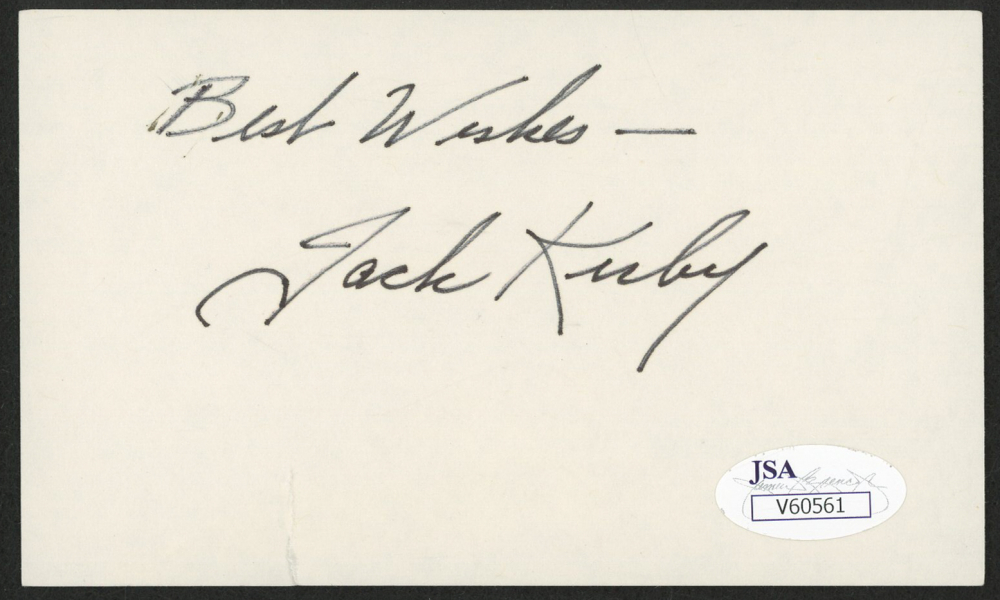 Best Wishes —
Jack Kirby
JSA
V60561